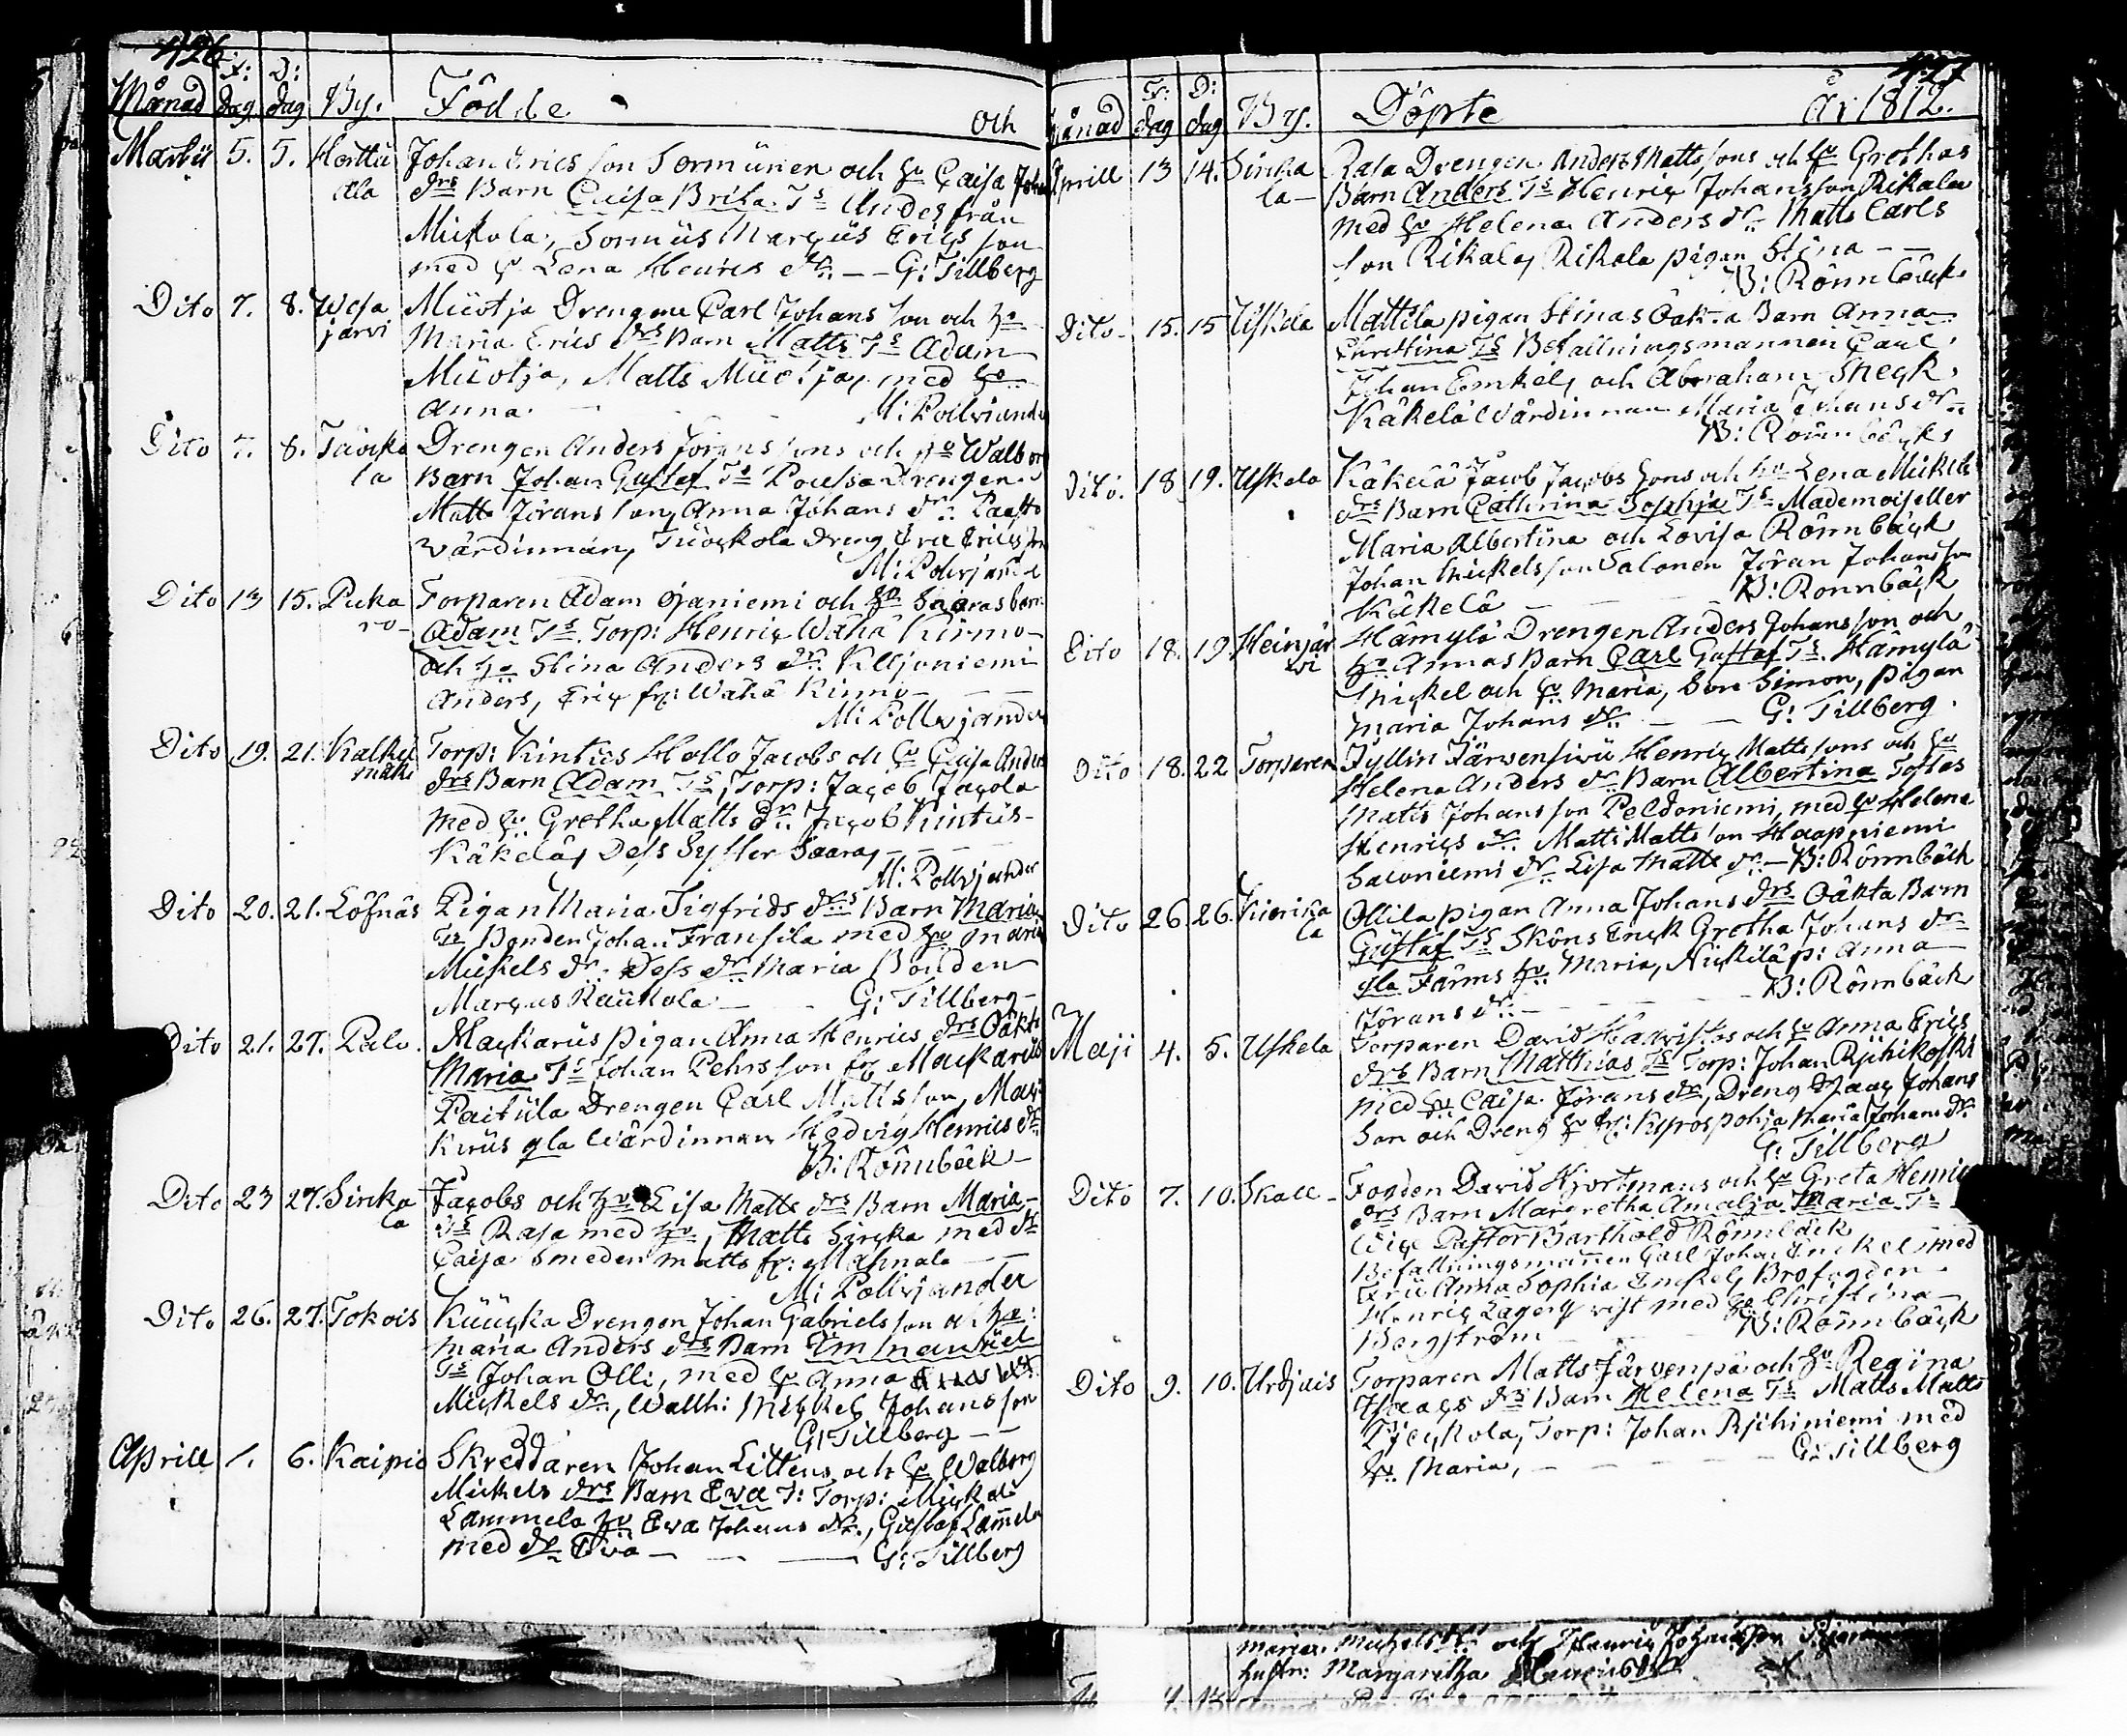 426
Månad F: dag D: dag By. Födde och
Martii 5. 5. Horttu Johan Erics son Sormunen och Hu Caisa Johans
ala drs Barn Caisa Brita. Ts Anders från
Mickola, Sormus Marcus Erics son
med h. Lena Henrics dr. — — G: Tillberg
Dito 7. 8. Wesa Muotja Drengens Carl Johans son och Hu
järvi Maria Erics drs Barn Matts Ts Adam
Muotja, Matts Muotja, med Hu
Anna. M: Pollviander
Dito 7. 8. Tuocko Drengen Anders Jörans sons och Hu Walbor
la Barn Johan Gustaf Ts Poussa Drengen
Matts Jörans son, Anna Johans dr.
Värdinnan, Tuockola dreng Eric Erics son
M: Pollvjander
Dito 13 15. Puka Torparen Adam Ojaniemi och Hu Saaras barn
ro- Adam Ts. Torp: Henric Wähä Kirmo
och Hu Stina Anders dr. Klljoniemi
Anders, Eric fr: Wähä Kirmo — — —
M: Pollvjander
Dito 19. 21. Kalku Torp: Kintus Hollo Jacobs och Hu Caisa Anders
mäki drs Barn Adam Ts, Torp: Jacob Jacola
med Hu Gretha Matts dr. Jacob Kintus-
Käkelä, Dess Syster Saara, — — — —
M: Pollvjander
Dito 20. 21. Löfnäs Pigan Maria Sigfrids drs Barn Maria
Ts Bonden Johan Fransila med Hu Maria
Mickels dr. Dess dr Maria Bonden
Marcus Kaukola — — G: Tillberg —
Dito 21. 27. Palo. Mackarus pigan Anna Henrics drs Oäkta
Maria Ts Johan Pehrsson fr Mackarus
Paitula Drengen Carl Mattsson, Mac
kirus gla Värdinnan Hedvig Henrics dr
B: Rönnbäck —
Dito 23 27. Sircka Jacobs och Hu Lisa Matts drs Barn Maria —
la Ts Rasa med Hu, Matts Sircka med dr
Caisa Smeden Matts fr: Mahnala
M: Pollvjander
Dito 26. 27. Tokois Kuucka Drengen Johan Gabriels son och Hu:
Maria Anders drs Barn Emanuel
Ts Johan Olli, med Hu Anna
Mickels dr., Wallh: Mickel Johansson
G: Tillberg — —
Aprill 1. 6. Kaipio Skreddaren Johan Littens och Hu Walborg
Mickels drs Barn Eva T: Torp: Mickel
Lammela Hu Eva Johans dr., Gustaf Lam̄ela
med dr Eva — — — G: Tillberg
427
Månad F: dag D: dag By. Döpte År 1812.
Aprill 13 14. Sircka Rasa Drengen Anders Mattssons och Hu Grethas
la — Barn Anders Ts Henric Johansson Rikala
med Hu Helena Anders dr. Matts Carls
son Rikala, Rikala pigan Stina — —
B: Rönnbäck
Dito — 15. 15 Uskela Mattila pigan Stinas Oäkta Barn Anna
Christina Ts Befallningsmannen Carl
Johan Emkel, och Abraham Sneck,
Käkelä Värdinnan Maria Johans dr.
B: Rönnbäcks
Dito. 18 19. Uskela Käkelä Jacob Jacobs Sons och Hu Lena Mickels
drs Barn Cathrina Sophia Ts Mademoiseller
Maria Albertina och Lovisa Rönnbäck
Johan Mickelsson Salonen Jöran Johansson
Käkelä — — — B: Rönnbäck
Dito 18. 19 Heinjär Hämylä Drengen Anders Johansson och
vi Hu Annas Barn Carl Gustaf Ts. Hämylä
Mickel och Hu Maria, Son Simon, pigan
Maria Johans dr. — — G: Tillberg.
Dito 18. 22 Torparen Fyllin Järvensivu Henric Matts sons och Hu
Helena Anders dr Barn Albertina Testes
Matts Johansson Peldoniemi, med Hu Helena
Henrics dr. Matts Matts son Haapniemi
Saloniemi dr Lisa Matts dr. — B: Rönnbäck
Dito 26 26. Kierika Ollila pigan Anna Johans drs Oäkta Barn
la Gustaf Ts Sköns Enck Gretha Johans dr
gla Färms Hu Maria, Nickilä p: Anna
Jörans dr. — — — B: Rönnbäck
Maji 4. 5. Uskela Torparen David Hauvistos och Hu Anna Erics
drs Barn Matthias Ts Torp: Johan Rjihikoski
med Hu Caisa Jörans dr, Dreng Isaac Johans
Son och Dreng Hu fr: Kyrospohja Maria Johans dr
G: Tillberg
Dito 7. 10. Skall — Fogden David Hjortmans och Hu Greta Henrics
drs Barn Margretha Amalja Maria Ts
Vice Pastor Barthold Rönnbäck
Befallningsman̄en Carl Johan Enckel med
Fru Anna Sophia Enckel, Brofogden
Henric Lagerqvist med Hu Christina
Bergström — — B: Rönnbäck
Dito 9. 10. Urdjais Torparen Matts Järvenpä och Hu Regina
Isaacs drs Barn Helena Ts Matts Matts
Pjeckola, Torp: Johan Rjihiniemi med
Hu. Maria, — — — — G: Tillberg
Maria Michels dr. och Henric Johansson
hustr: Margaretha Henrics dr